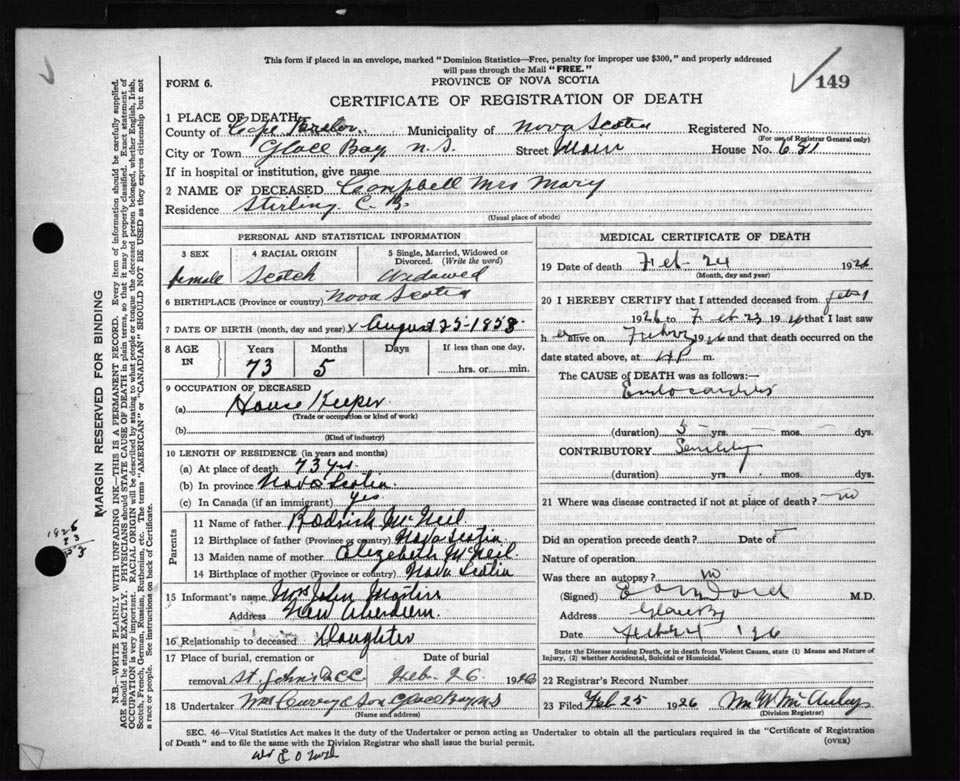 This form if placed in an envelope, marked "Dominion Statistics—Free, penalty for improper use $300," and properly addressed
will pass through the Mail "FREE."
149
FORM 6.
PROVINCE OF NOVA SCOTIA
CERTIFICATE OF REGISTRATION OF DEATH
1 PLACE OF DEATH
County of Cape Breton Municipality of Nova Scotia Registered No.
(For use of Registrar General only)
City or Town Glace Bay N.S. Street Main House No. 681
If in hospital or institution, give name
2 NAME OF DECEASED Campbell Mrs Mary
Residence Stirling C.B.
(Usual place of abode)
PERSONAL AND STATISTICAL INFORMATION
3 SEX 4 RACIAL ORIGIN 5 Single, Married, Widowed or Divorced. (Write the word)
female Scotch Widowed
6 BIRTHPLACE (Province or country) Nova Scotia
7 DATE OF BIRTH (month, day and year) August 25-1853
8 AGE IN Years Months Days If less than one day,
73 5 hrs. or min.
9 OCCUPATION OF DECEASED
(a) House Keeper
(Trade or occupation or kind of work)
(b)
(Kind of industry)
10 LENGTH OF RESIDENCE (in years and months)
(a) At place of death 73 yrs
(b) In province Nova Scotia
(c) In Canada (if an immigrant) yes
Parents
11 Name of father Rodrick McNeil
12 Birthplace of father (Province or country) Nova Scotia
13 Maiden name of mother Elizebeth McNeil
14 Birthplace of mother (Province or country) Nova Scotia
15 Informant's name Mrs John Martin
Address New Aberdeen
16 Relationship to deceased Daughter
17 Place of burial, cremation or removal Date of burial
St. John's Feb. 26 1926
18 Undertaker Curry & Son Glace Bay NS
(Name and address)
MEDICAL CERTIFICATE OF DEATH
19 Date of death Feb 24 1926
(Month, day and year)
20 I HEREBY CERTIFY that I attended deceased from Feb 1
1926 to Feb 23 1926 that I last saw
her alive on Feb 23 1926 and that death occurred on the
date stated above, at 4 P m.
The CAUSE of DEATH was as follows:—
Endocarditis
(duration) 5 yrs. — mos. — dys.
CONTRIBUTORY Senility
(duration) yrs. mos. dys.
21 Where was disease contracted if not at place of death? — no
Did an operation precede death? Date of
Nature of operation
Was there an autopsy? no
(Signed) M.D.
Address Glace B
Date Feb 24 '26
State the Disease causing Death, or in death from Violent Causes, state (1) Means and Nature of Injury, (2) whether Accidental, Suicidal or Homicidal.
22 Registrar's Record Number
23 Filed Feb 25 1926
(Division Registrar)
SEC. 46—Vital Statistics Act makes it the duty of the Undertaker or person acting as Undertaker to obtain all the particulars required in the "Certificate of Registration
of Death" and to file the same with the Division Registrar who shall issue the burial permit.
(OVER)
MARGIN RESERVED FOR BINDING
N.B.—WRITE PLAINLY WITH UNFADING INK—THIS IS A PERMANENT RECORD. Every item of information should be carefully supplied.
AGE should be stated EXACTLY. PHYSICIANS should STATE CAUSE OF DEATH in plain terms, so that it may be properly classified. Exact statement of
OCCUPATION is very important. RACIAL ORIGIN will be described by stating to what people or tongue the deceased person belonged, whether English, Irish,
Scotch, French, German, Russian, Ruthenian, etc. The terms "AMERICAN" or "CANADIAN" SHOULD NOT BE USED as they express citizenship but not
a race or people. See instructions on back of Certificate.
1926
73